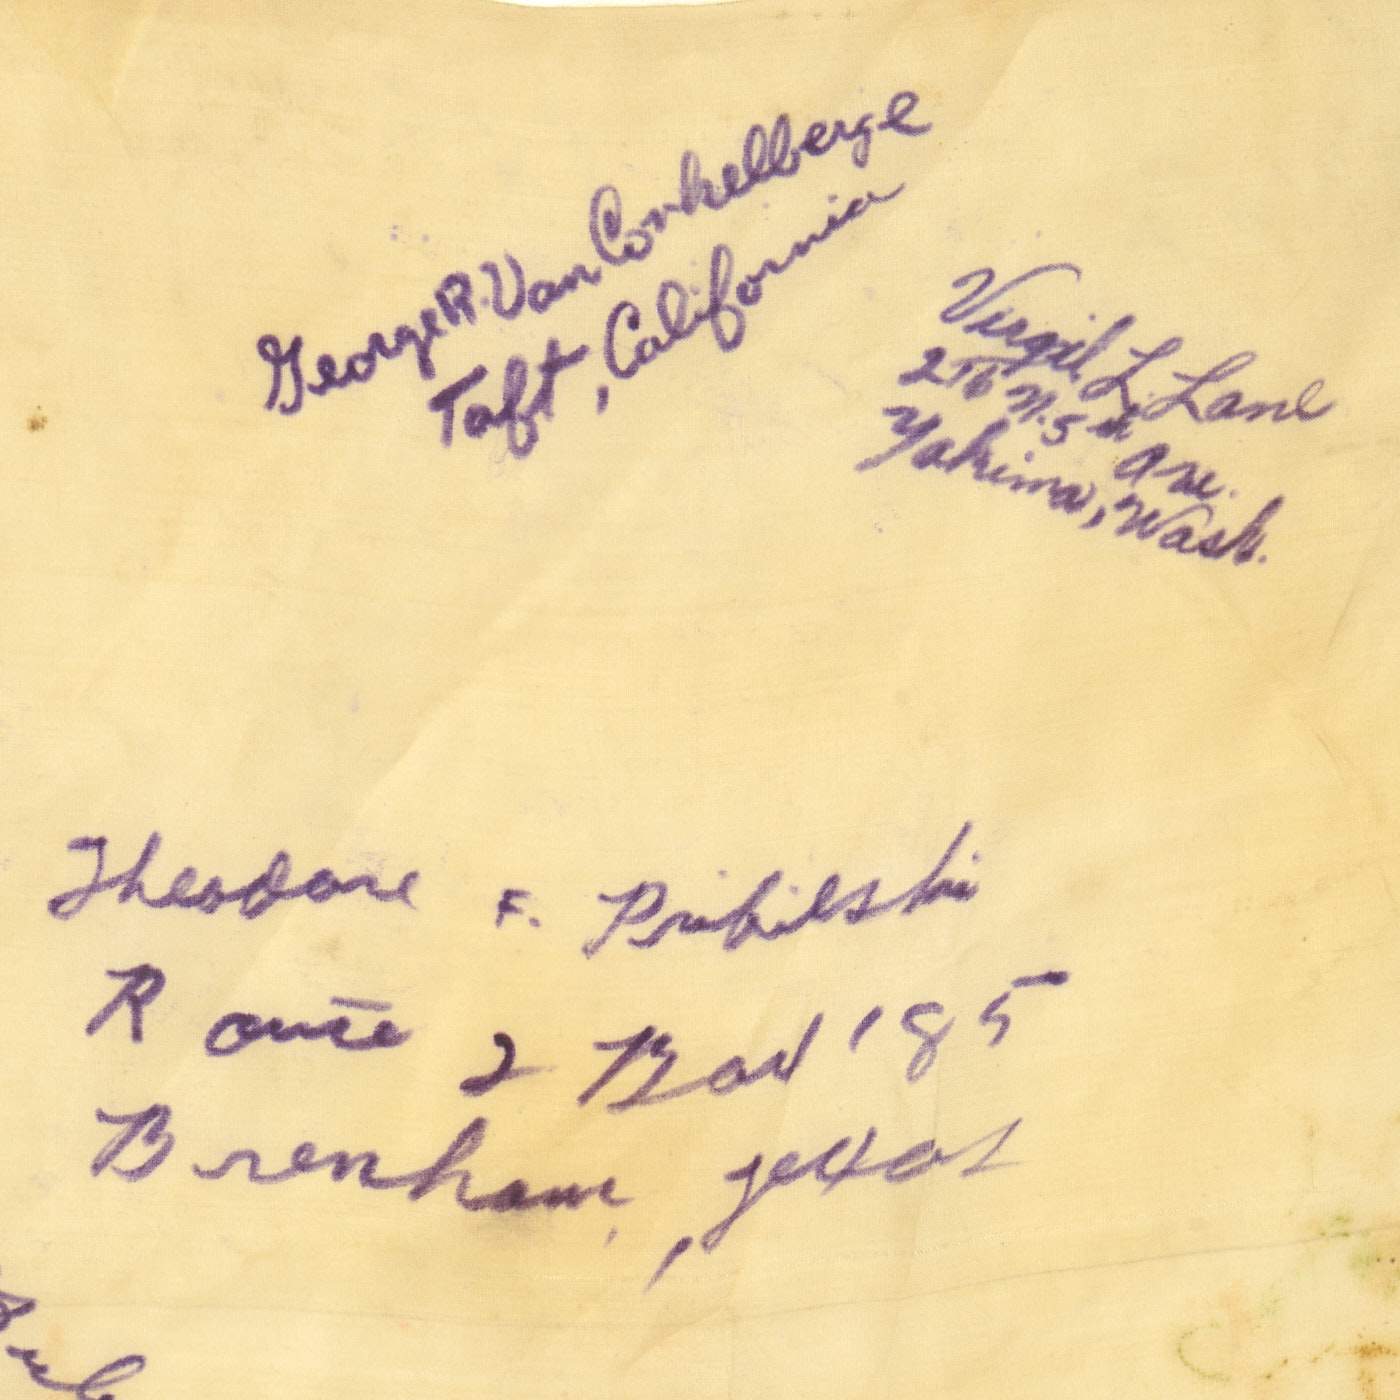 George R. Van Conkelberge
Taft, California
Virgil L. Lane
216 N. 5th Ave.
Yakima, Wash.
Theodore F. Pribilski
Route 2 Box 185
Brenham, Texas